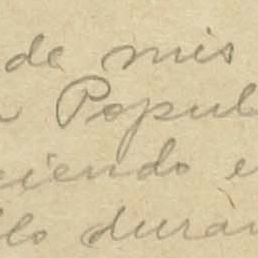 de mis
a Popul
ciendo e
lo duran